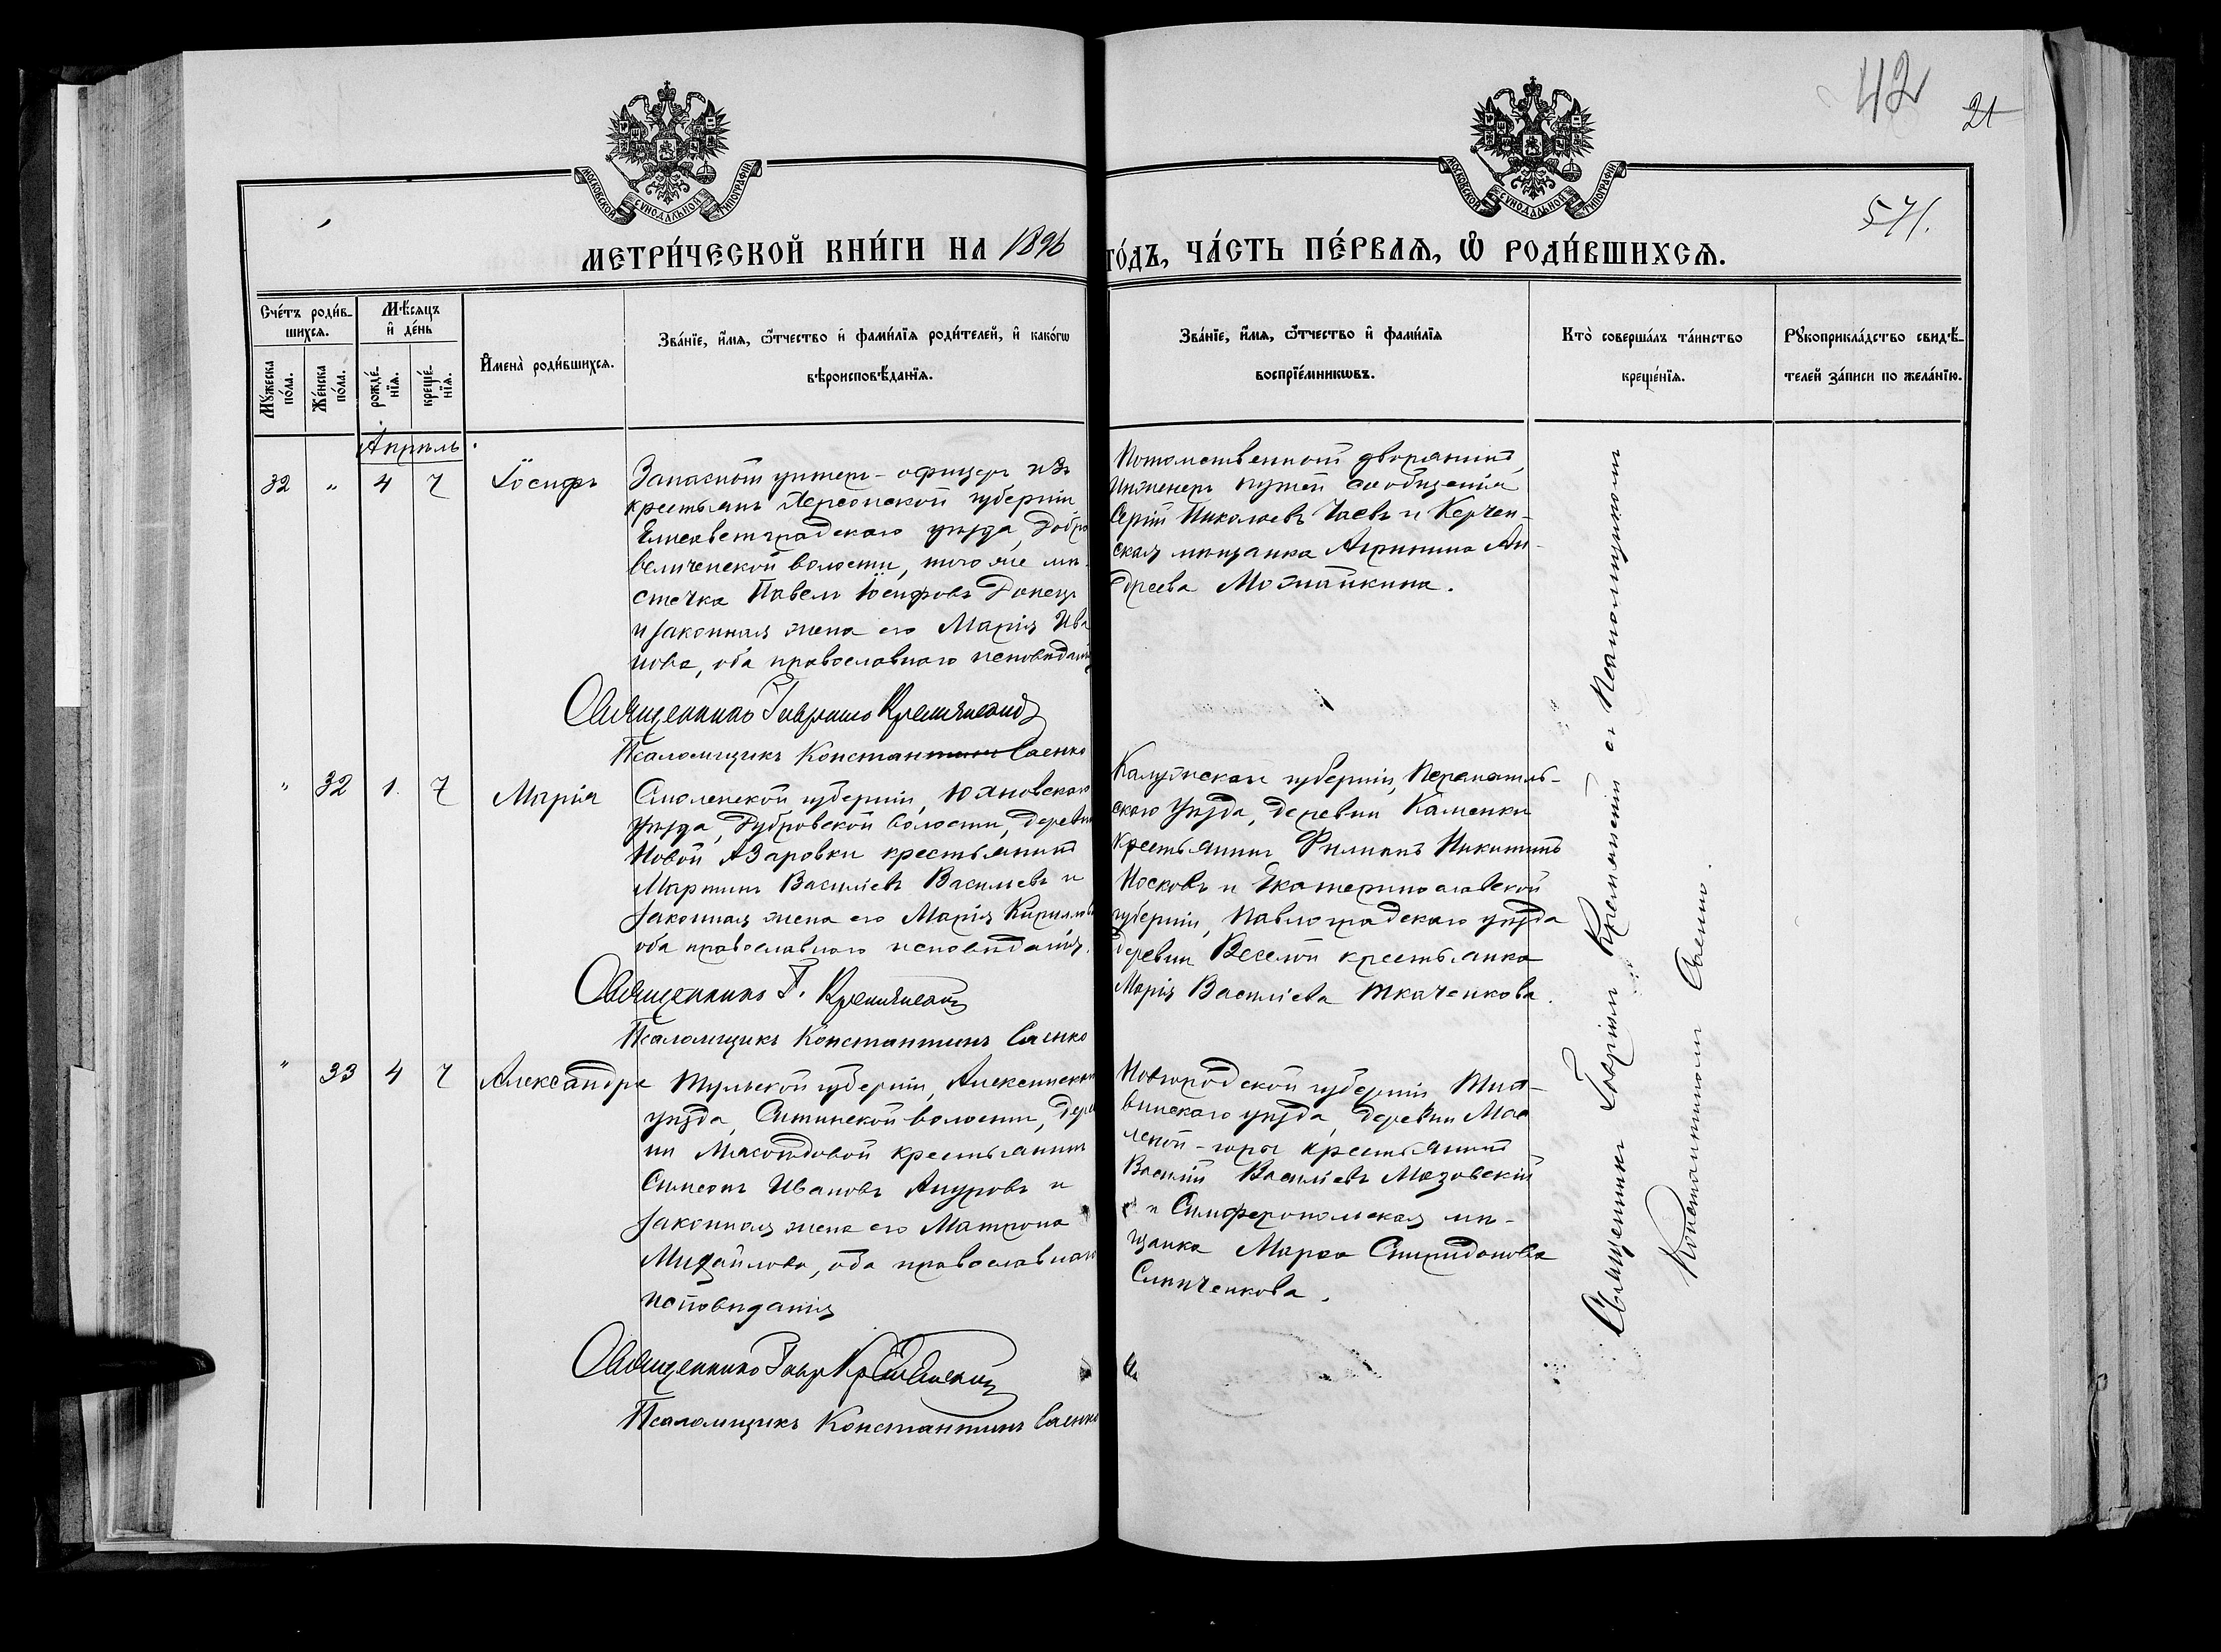 42
21
571.
МОСКОВСКОЙ СѴНОДАЛЬНОЙ ТИПОГРАФІИ
МОСКОВСКОЙ СѴНОДАЛЬНОЙ ТИПОГРАФІИ
МЕТРИ́ЧЕСКОЙ КНИ́ГИ НА 1896
ГО́ДЪ, ЧА́СТЬ ПЕ́РВАѦ, Ѡ҆ РОДИ́ВШИХСѦ.
Сче́тъ роди́в-
шихсѧ.
Мꙋ́жеска по́ла.
Же́нска по́ла.
Мѣ́сѧцъ
и҆ де́нь
рожде́-нїѧ.
креще́-нїѧ.
И҆мена̀ роди́вшихсѧ.
Зва́нїе, и҆́мѧ, ѻ҆́тчество и҆ фами́лїѧ роди́телей, и҆ како́гѡ
вѣроисповѣ́данїѧ.
Зва́нїе, и҆́мѧ, ѻ҆́тчество и҆ фами́лїѧ
воспрїе́мникѡвъ.
Кто̀ соверша́лъ та́инство
креще́нїѧ.
Рꙋкоприкла́дство свидѣ́-
телей за́писи по жела́нїю.
Апрѣль
32 " 4 7 Іосифъ
Запасной унтеръ-офицеръ изъ
крестьянъ Херсонской губерніи
Елисаветградскаго уѣзда, Добро
величской волости, того же мѣ-
стечка Павелъ Іосифовъ Донецъ
и законная жена его Марія Ива
нова, оба православнаго исповѣданія
Священникъ Гавріилъ Кремянскій
Псаломщикъ Константинъ Саенко
Потомственный дворянинъ,
Инженеръ путей сообщенія
Сергій Николаевъ Чаевъ и Керчен-
ская мѣщанка Агрипина Ан-
дреева Можайкина.
" 32 1. 7 Марія
Смоленской губерніи, Юхновскаго
уѣзда, Дубровской волости, деревни
Новой Азаровки крестьянинъ
Мартинъ Василіевъ Василевъ и
законная жена его Марія Кирилова
оба православнаго исповѣданія.
Священникъ Г. Кремянскій
Псаломщикъ Константинъ Саенко
Калужской губерніи, Перемышль-
скаго уѣзда, деревни Каменки
крестьянинъ Филипъ Никитинъ
Носковъ и Екатеринославской
губерніи, Павлоградскаго уѣзда
деревни Веселой крестьянка
Марія Василіева Ткаченкова.
" 33 4 7 Александра
Тульской губерніи, Алексинскаго
уѣзда, Ситинской волости, дерев
ни Мясоѣдовой крестьянинъ
Симеонъ Ивановъ Ануровъ и
законная жена его Матрона
Михайлова, оба православнаго
исповѣданія
Священникъ Гавр Кремянскій
Псаломщикъ Константинъ Саенко
Новгородской губерніи Тих-
винскаго уѣзда, деревни Мас
леной-горы крестьянинъ
Василій Василіевъ Мазовскій
и Симферопольская мѣ-
щанка Марѳа Спиридонова
Слинченкова.
Священникъ Гавріилъ Кремянскій съ Псаломщикомъ
Константиномъ Саенко.